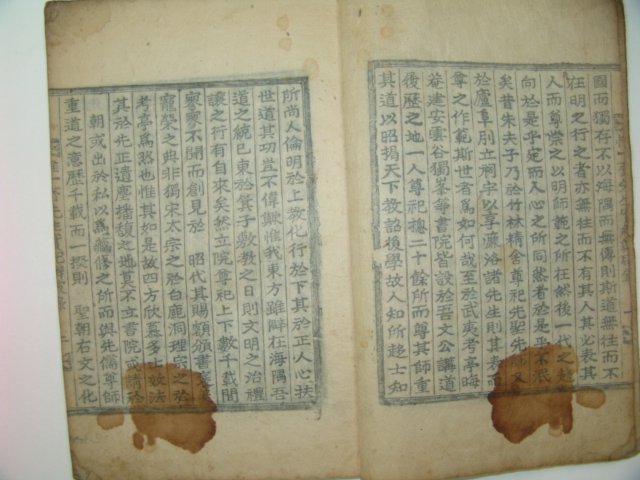 國而獨存不以海隅而無傳則斯道無往而不
在明之行之者亦無往而不有其人其必表其
人而尊崇之以明師範之所在然後一代之趨
向於是乎定而人心之所同然者於是乎不泯
矣昔朱夫子乃於竹林精舍尊祀先聖先師又
於廬阜別立祠宇以享濂洛諸先生則其表而
尊之作範斯世者爲如何哉至於武夷考亭晦
菴建安雲谷獨峯等書院皆設於吾文公講道
後歷之地一人尊祀摠二十餘所而尊其師重
其道以昭揭天下敎詔後學故人知所趍士知
所尚人倫明於上敎化行於下其於正人心扶
世道其功豈不偉歟惟我東方雖僻在海隅吾
道之統已東於箕子敷敎之日則文明之治禮
讓之行有自來矣然立院尊祀上下數千載間
寥寥不聞而創見於 昭代其賜額頒書
寵榮之典非獨宋太宗之於白鹿洞理宗之於
考亭爲然也惟其如是故四方欣慕多士效法
其於先正遺塵播馥之地莫不立書院或請於
朝或出於私以爲藏修之所而與先儒尊師
重道之意歷千載而一揆則 聖朝右文之化